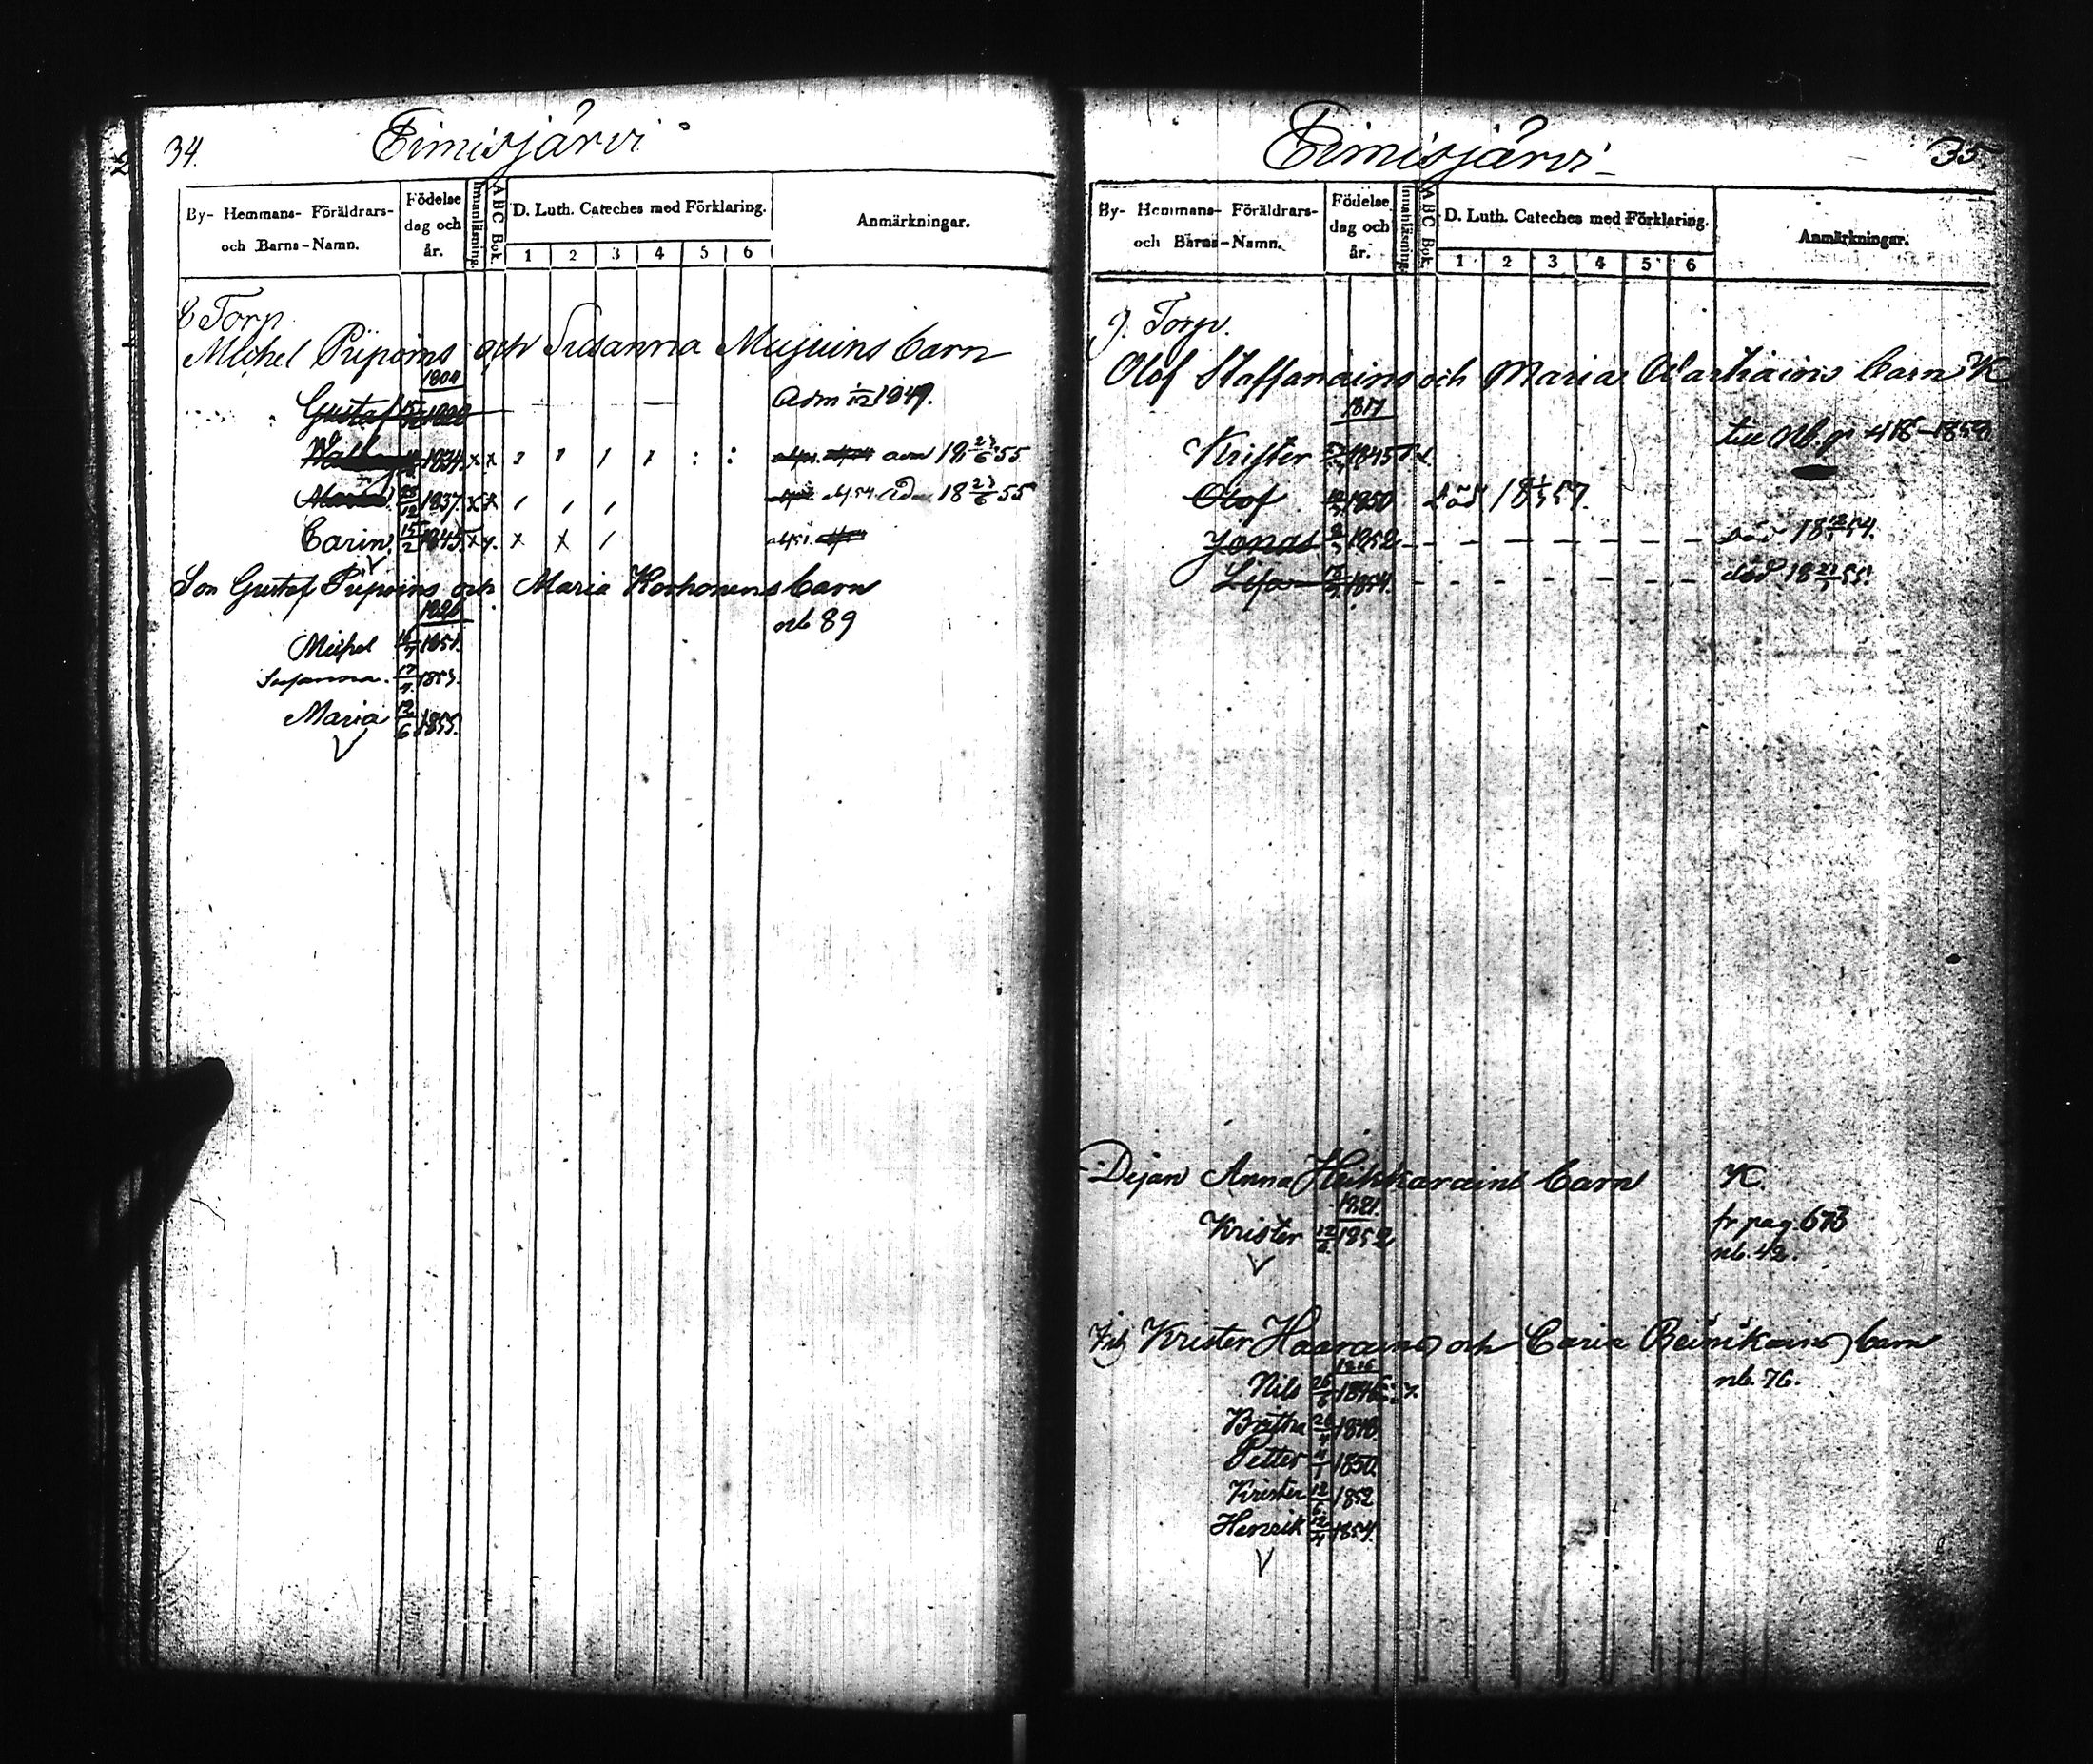 34.
Eimisjärvi
By- Hemmans- Föräldrars- och Barns-Namn.
Födelse dag och år.
Innanläsning.
ABC Bok.
D. Luth. Cateches med Förklaring.
1 2 3 4 5 6
Anmärkningar.
Torp
Michel Piipoins och Susanna Mujuins barn
1804
Gustaf
Adm 1849.
1834. x x adm 18 23/6 55
25/12 1837. x x alf54 Adm 18 23/6 55
Carin 15/2 1845 x x x
Son Gustaf Piipoins och Maria Korhonens barn
1826
nb 89
Michel 1851.
Susanna. 1853.
Maria 12/6 1855.
Eimisjärvi
35
By- Hemmans- Föräldrars- och Barns-Namn.
Födelse dag och år.
Innanläsning.
ABC Bok.
D. Luth. Cateches med Förklaring.
1 2 3 4 5 6
Anmärkningar.
J. Torp.
Olof Staffanains och Maria barn K
1817
Krister 1845
till Nb. 1858
Olof 1850 död 57.
Jonas 1852 – – – – – – död 18 54.
Lisa 1854. – – – – – – död 18 55.
Dejan Anna Heikkarains barn K.
1821.
Krister 12/6 1852
fr pag 673
nb. 42.
Krister Haarains och Carin barn
1816
nb. 76.
Nils 26/6 1846
Britha 1848
Petter 4/1 1850
Krister 12/6 1852
Henrik 12/4 1854.